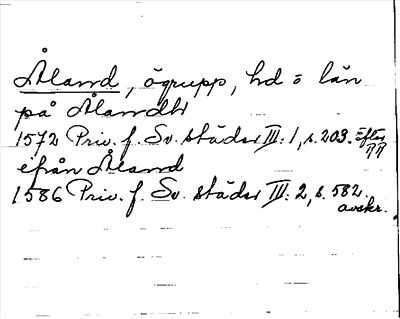 Åland, ögrupp, hd = län
på Ålandh
1572 Priv. f. Sv. städer III: 1, s. 203. efter
ifrån Åland
1586 Priv. f. Sv. städer III: 2, s. 582.
avskr.